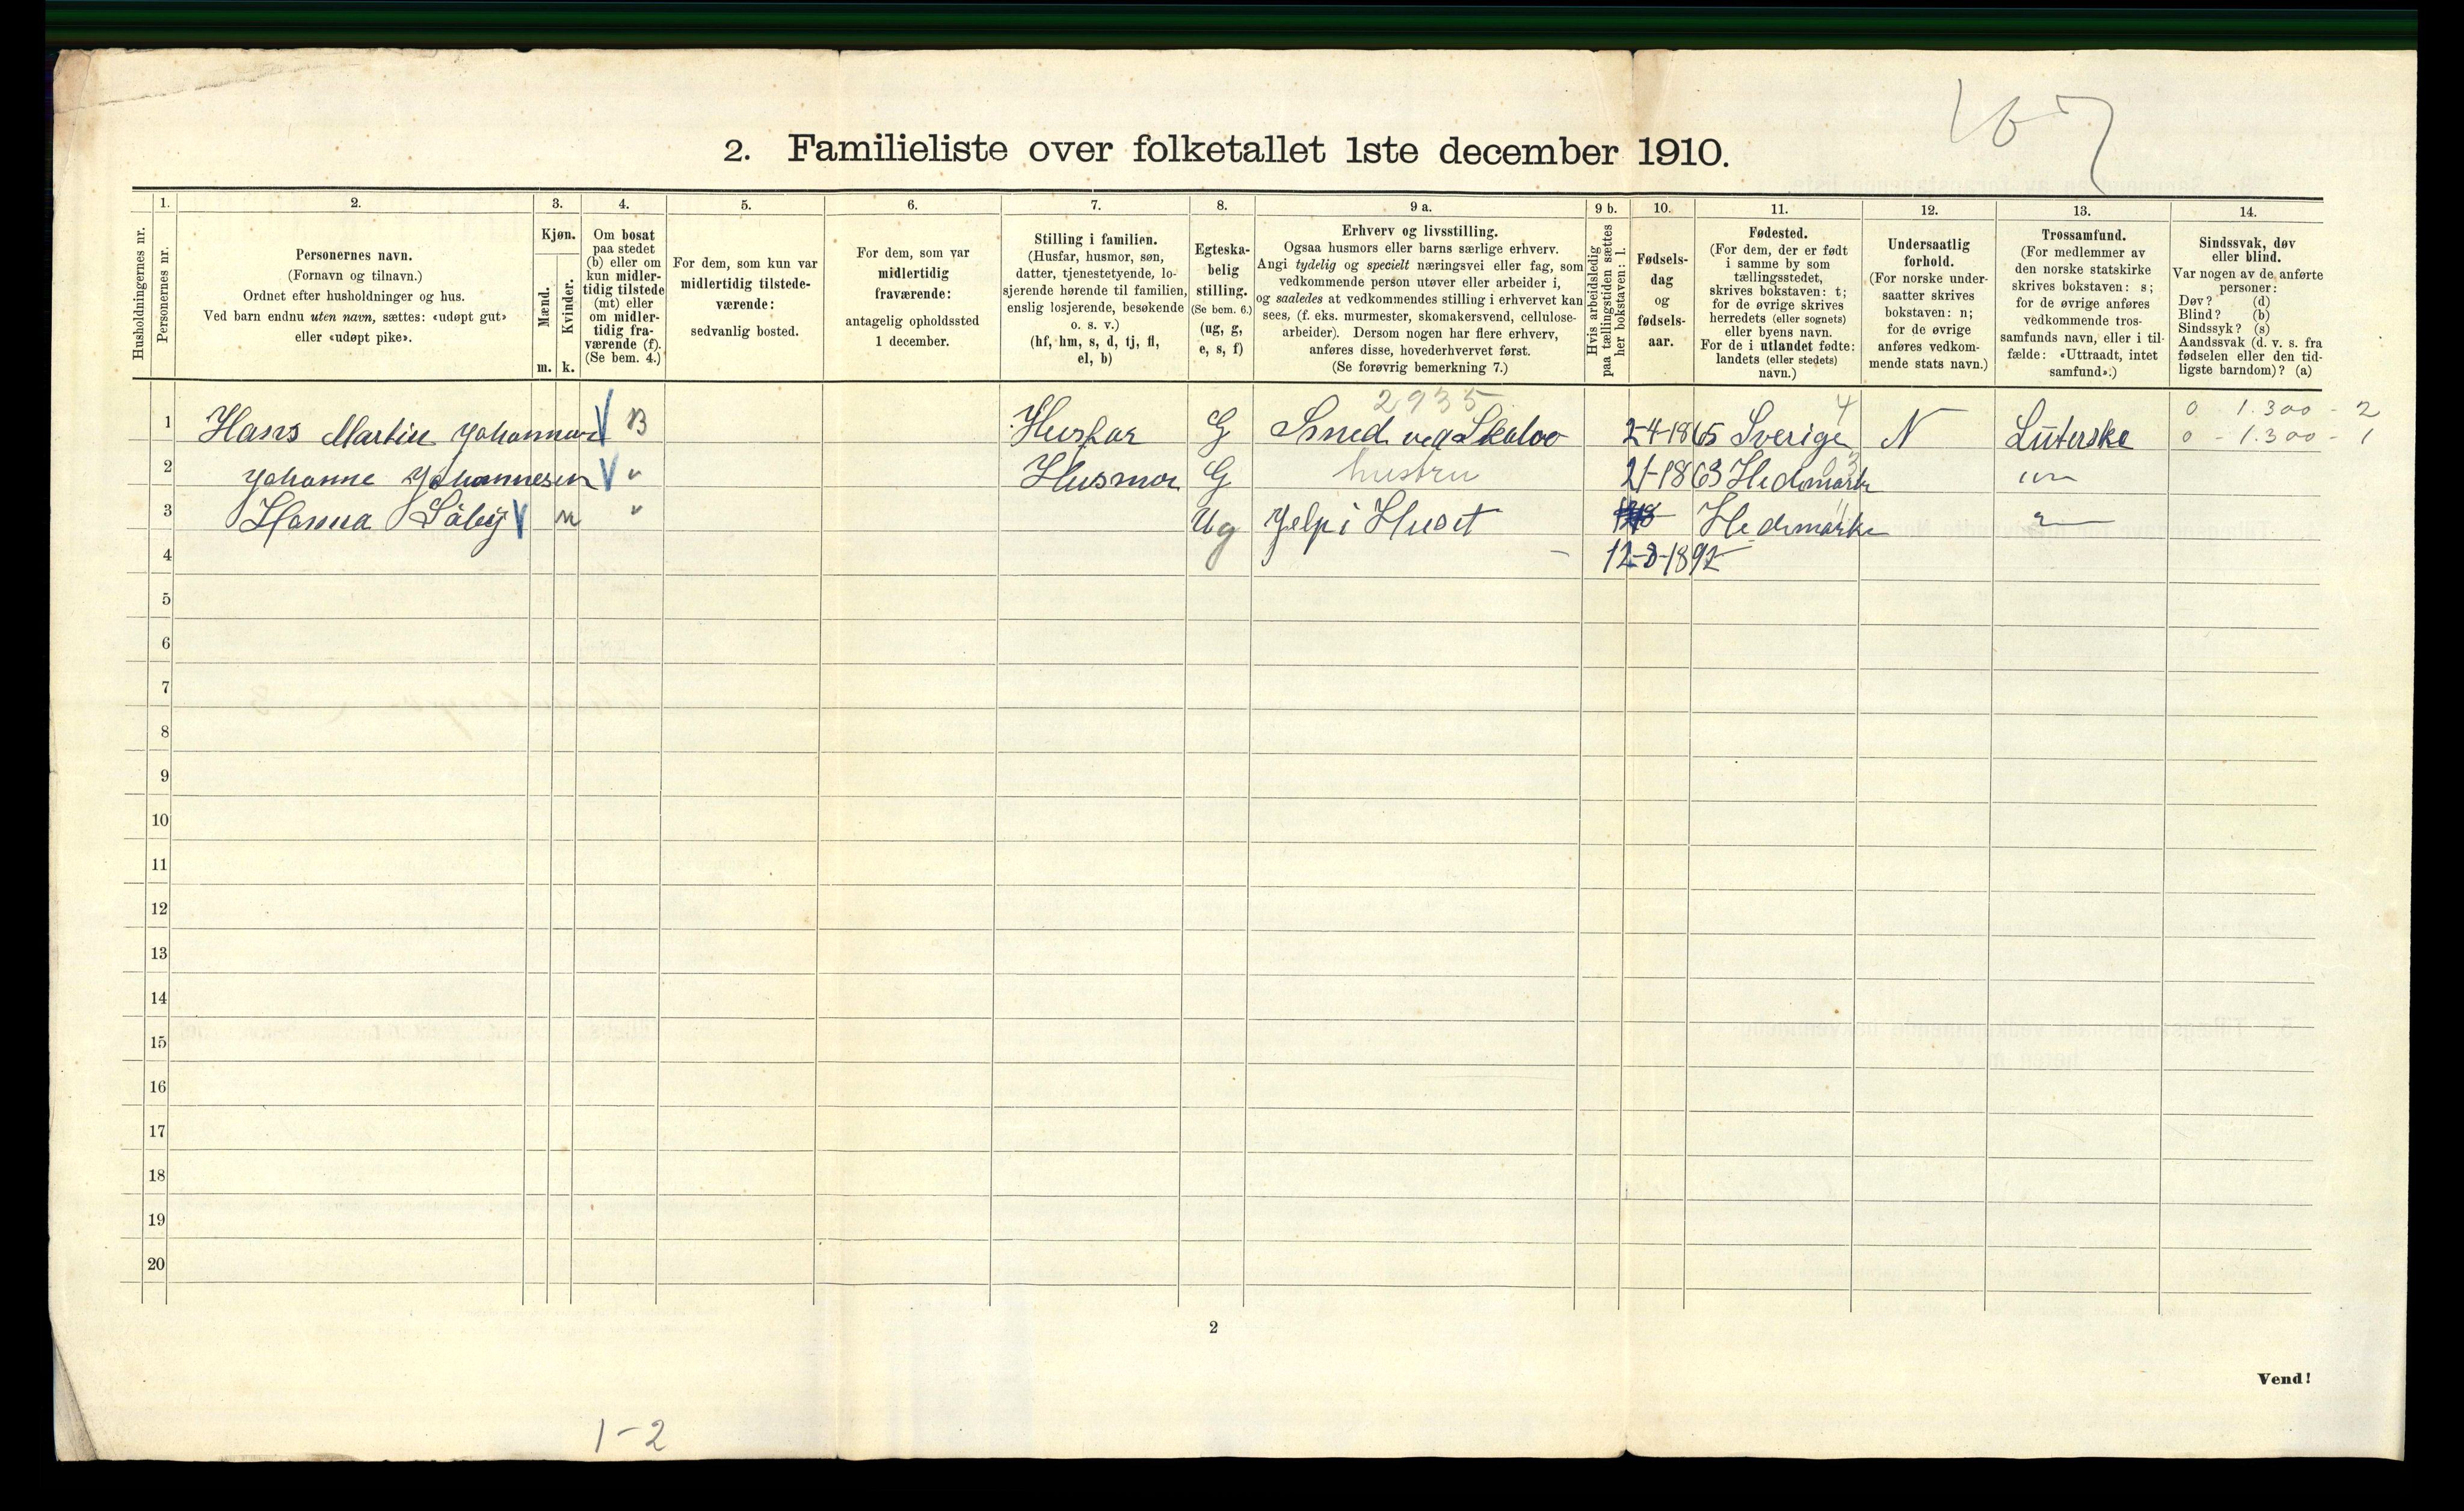 167
2. Familieliste over folketallet 1ste december 1910.
Husholdningernes nr.
1.
Personernes nr.
2.
Personernes navn.
(Fornavn og tilnavn.)
Ordnet efter husholdninger og hus.
Ved barn endnu uten navn, sættes: «udøpt gut»
eller «udøpt pike».
3.
Kjøn.
Mænd.
m.
Kvinder.
k.
4.
Om bosat
paa stedet
(b) eller om
kun midler-
tidig tilstede
(mt) eller
om midler-
tidig fra-
værende (f).
(Se bem. 4.)
5.
For dem, som kun var
midlertidig tilstede-
værende:
sedvanlig bosted.
6.
For dem, som var
midlertidig
fraværende:
antagelig opholdssted
1 december.
7.
Stilling i familien.
(Husfar, husmor, søn,
datter, tjenestetyende, lo-
sjerende hørende til familien,
enslig losjerende, besøkende
o. s. v.)
(hf, hm, s, d, tj, fl,
el, b)
8.
Egteska-
belig
stilling.
(Se bem. 6.)
(ug, g,
e, s, f)
9 a.
Erhverv og livsstilling.
Ogsaa husmors eller barns særlige erhverv.
Angi tydelig og specielt næringsvei eller fag, som
vedkommende person utøver eller arbeider i,
og saaledes at vedkommendes stilling i erhvervet kan
sees, (f. eks. murmester, skomakersvend, cellulose-
arbeider). Dersom nogen har flere erhverv,
anføres disse, hovederhvervet først.
(Se forøvrig bemerkning 7.)
9 b.
Hvis arbeidsledig
paa tællingstiden sættes
her bokstaven: l.
10.
Fødsels-
dag
og
fødsels-
aar.
11.
Fødested.
(For dem, der er født
i samme by som
tællingsstedet,
skrives bokstaven: t;
for de øvrige skrives
herredets (eller sognets)
eller byens navn.
For de i utlandet fødte:
landets (eller stedets)
navn.)
12.
Undersaatlig
forhold.
(For norske under-
saatter skrives
bokstaven: n;
for de øvrige
anføres vedkom-
mende stats navn.)
13.
Trossamfund.
(For medlemmer av
den norske statskirke
skrives bokstaven: s;
for de øvrige anføres
vedkommende tros-
samfunds navn, eller i til-
fælde: «Uttraadt, intet
samfund».)
14.
Sindssvak, døv
eller blind.
Var nogen av de anførte
personer:
Døv? (d)
Blind? (b)
Sindssyk? (s)
Aandssvak (d. v. s. fra
fødselen eller den tid-
ligste barndom)? (a)
2935 4 0 1.300 - 2
1 Hans Martin Johannesen V B Husfar G Smed ved Skaloo 2-4-1865 Sverige N Lüterske 0 - 1.300 - 1
2 Johanne Johannesen V " Husmor G hustru 2/-1863 Hedemarke
3 Hanna Säby V " Ug Jelp i Huset Hedemarke
4 12-8-1892
5
6
7
8
9
10
11
12
13
14
15
16
17
18
19
20
2
Vend!
1-2